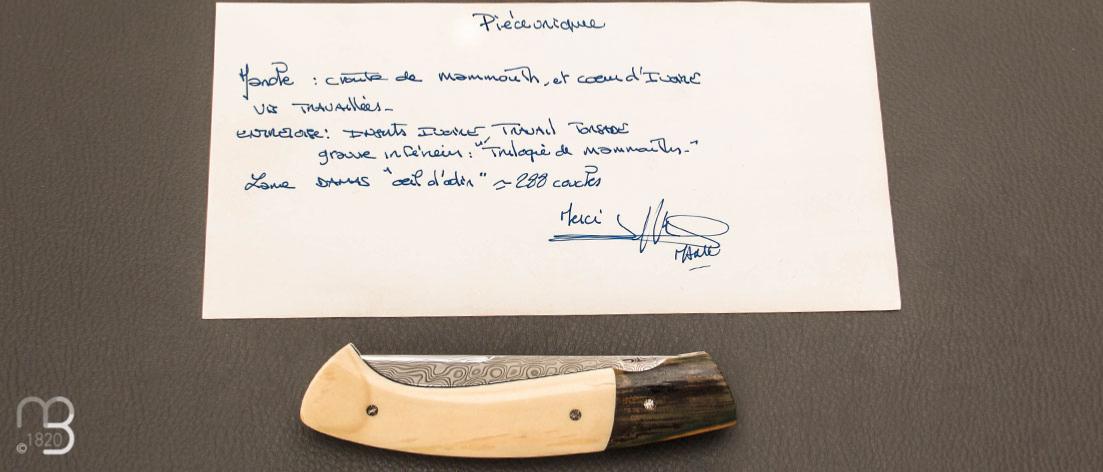 Pièce unique
Manche : croute de mammouth, et coeur d'Ivoire
Vis TRAVAillées -
ENTRETOISE : INSERTS IVOIRE, TRAVAIL TORSADE
gravure inférieur : "Trilogie de mammouths - "
Lame DAMAS "oeil d'odin" ≃ 288 couches
Merci
MB
©1820